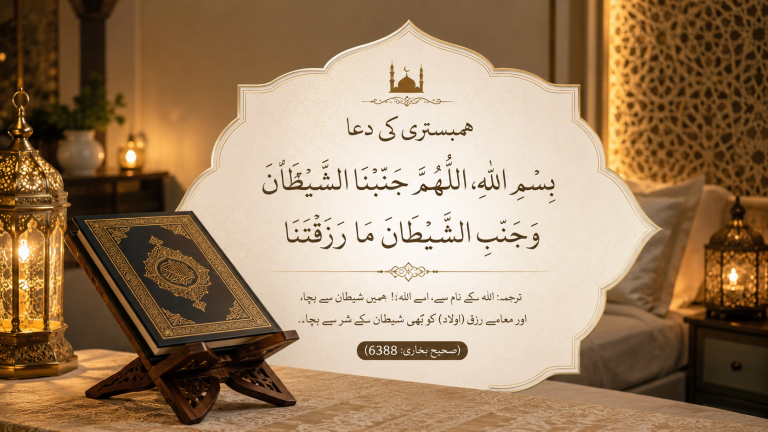 ہمبستری کی دعا
بِسْمِ اللّٰهِ، اللّٰهُمَّ جَنِّبْنَا الشَّيْطَانَ
وَجَنِّبِ الشَّيْطَانَ مَا رَزَقْتَنَا
ترجمہ: اللہ کے نام سے، اے اللہ! ہمیں شیطان سے بچا،
اور معامے رزق (اولاد) کو بھی شیطان کے شر سے بچا..
(صحیح بخاری: 6388)